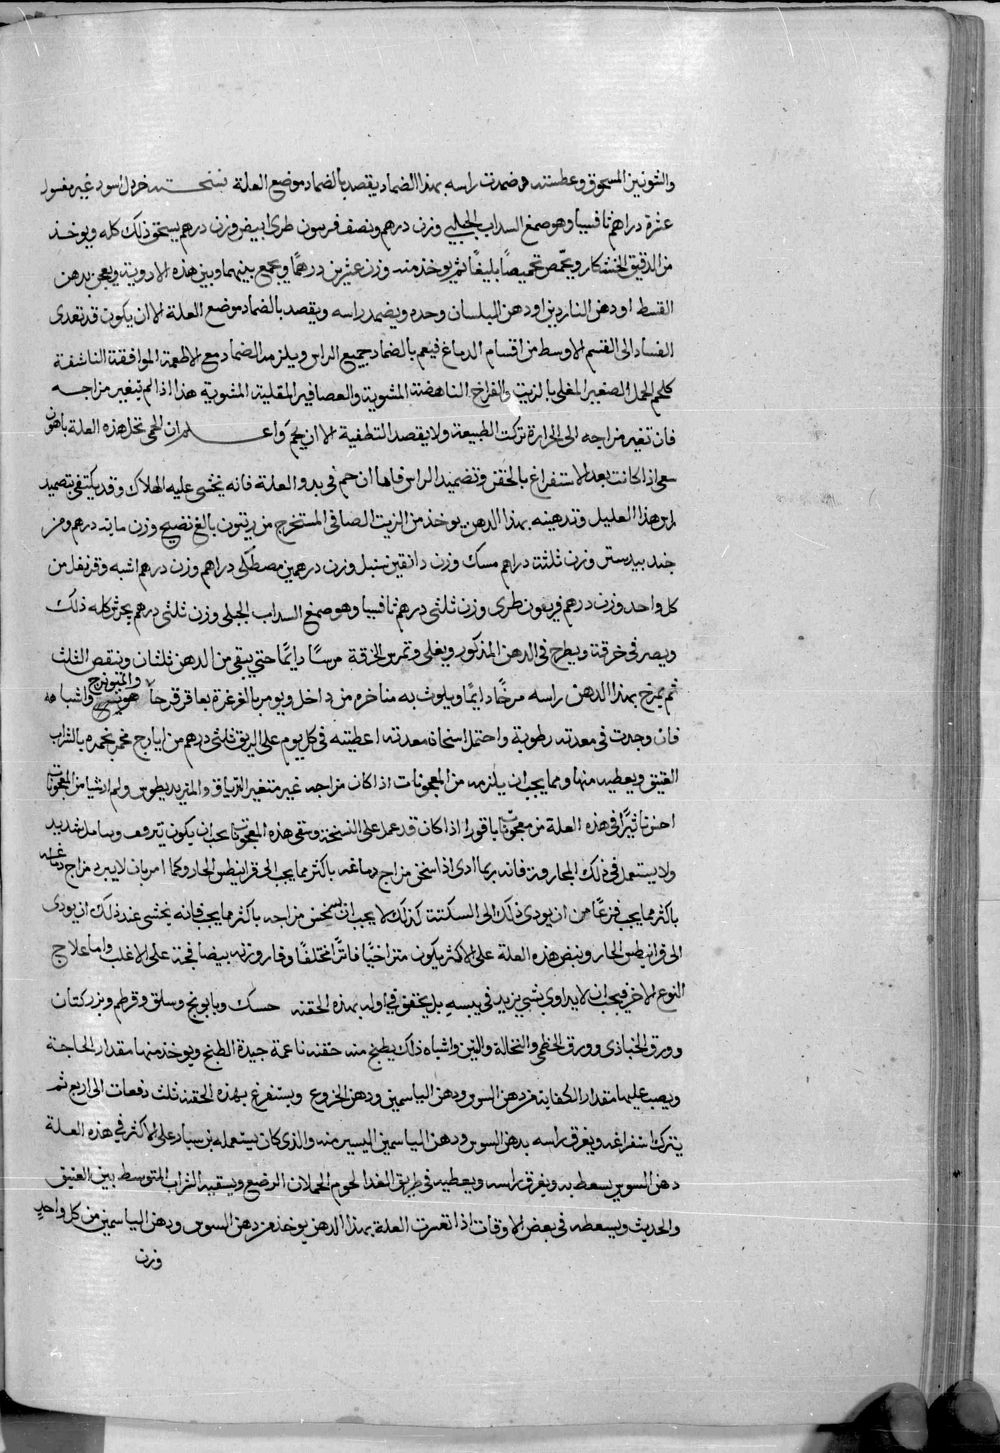 والشونيز المسحوق وعطسته وضمدت راسه بهذا الضماد يقصد بالضماد موضع العلة نسخته خردل اسود غير مغسول
عشرة دراهم ثافسيا وهو صمغ السداب الجبلي وزن درهم ونصف فربيون طري ابيض وزن درهم يسحق ذلك كله ويوخذ
من الدقيق الخشكار ويحمص تحميصًا بليغًا ثم يوخذ منه وزن عشرين درهمًا ويجمع بينهما وبين هذه الادوية ويعجن بدهن
القسط او دهن الناردين او دهن البلسان وحده ويضمد راسه ويقصد بالضماد موضع العلة الا ان يكون قد تعدى
الفساد الى القسم الاوسط من اقسام الدماغ فيعم بالضماد جميع الراس ويلزمه الضماد مع الاطعمة الموافقة الناشفة
كلحم الحمل الصغير المغلي بالزيت والفراخ الناهضة المشوية والعصافير المقلية المشوية هذا اذا لم تتغير مزاجه
فان تغير مزاجه الى الحرارة تركت الطبيعة ولا يقصد التطفية الا ان يحم واعلم ان الحمى تحل هذه العلة باهون
سعي اذا كانت بعد الاستفراغ بالحقن وتضميد الراس فاما ان حم في بدو العلة فانه يخشى عليه الهلاك وقد يكتفي بتضميد
راس هذا العليل وتدهينه بهذا الدهن يوخذ من الزيت الصافي المستخرج من زيتون بالغ نضيج وزن مايه درهم ومن
جندبيدستر وزن ثلثة دراهم مسك وزن دانقين سنبل وزن درهمين مصطكى دراهم وزن درهم اشنه وقرنفل من
كل واحد وزن درهم فربيون طري وزن ثلثي درهم ثافسيا وهو صمغ السداب الجبلي وزن ثلثي درهم يجرش كله ذلك
ويصر في خرقة ويطرح في الدهن المذكور ويغلي وتمرس الخرقة مرسًا دايمًا حتي يبقي من الدهن ثلثان وينقص الثلث
ثم يمرخ بهذا الدهن راسه مرخًا دايمًا ويلوث به مناخره من داخل ويومر بالغرغرة بعاقرقرحا والميويزج واشباهه
فان وجدت في معدته رطوبة واحتمل اسخان معدته اعطيته في كل يوم على الريق ثلثي درهم من ايارج مخمر بخمره بالشراب
العتيق ويعطيه منها ومما يجب ان يلزمه من المعجونات اذا كان مزاجه غير متغير الترياق والمثريديطوس ولم ار شيا من المعجونات
احسن تاثيرًا في هذه العلة من معجون باقورا اذا كان قد عمل على النسخة وسقي هذه المعجونات يجب ان يكون بتروف وتامل شديد
ولا يستعمل في ذلك المجازفة فانه ربما ادى اذا سخن مزاج دماغه باكثر مما يجب الى قرانيطس الحار وكما امر بان لا يبرد مزاج دماغه
باكثر مما يجب فزعًا من ان يودي ذلك الى السكتة كذلك لا يجب ان يسخن مزاجه باكثر مما يجب فانه يخشى عند ذلك ان يودي
الى قرانيطس الحار ونبض هذه العلة على الاكثر يكون متراخيًا فاترًا مختلفًا وقارورته بيضا فجة على الاغلب واما علاج
النوع الاخر فيجب ان لا يداوي بشي يزيد في يبسه بل يحقن في اوله بهذه الحقنه حسك وبابونج وسلق وقرطم وبزر كتان
وورق الخبازى وورق الخطمي والنخالة والتين واشباه ذلك يطبخ منه حقنه ناعمة جيدة الطبخ ويوخذ منها مقدار الحاجة
ويصب عليها مقدار الكفاية من دهن السوسن ودهن الياسمين ودهن الخروع ويستفرغ بهذه الحقنه ثلث دفعات الى اربع ثم
يترك استفراغه ويغرق راسه بدهن السوسن ودهن الياسمين اليسير منه والذي كان يستعمله بن سيار على الاكثر في هذه العلة
دهن السوسن يسعط به ويغرق راسه ويعطيه في طريق الغذا لحوم الحملان الرضع ويسقيه الشراب المتوسط بين العتيق
والحديث ويسعطه في بعض الاوقات اذا تعسرت العلة بهذا الدهن يوخذ من دهن السوسن ودهن الياسمين من كل واحد
وزن